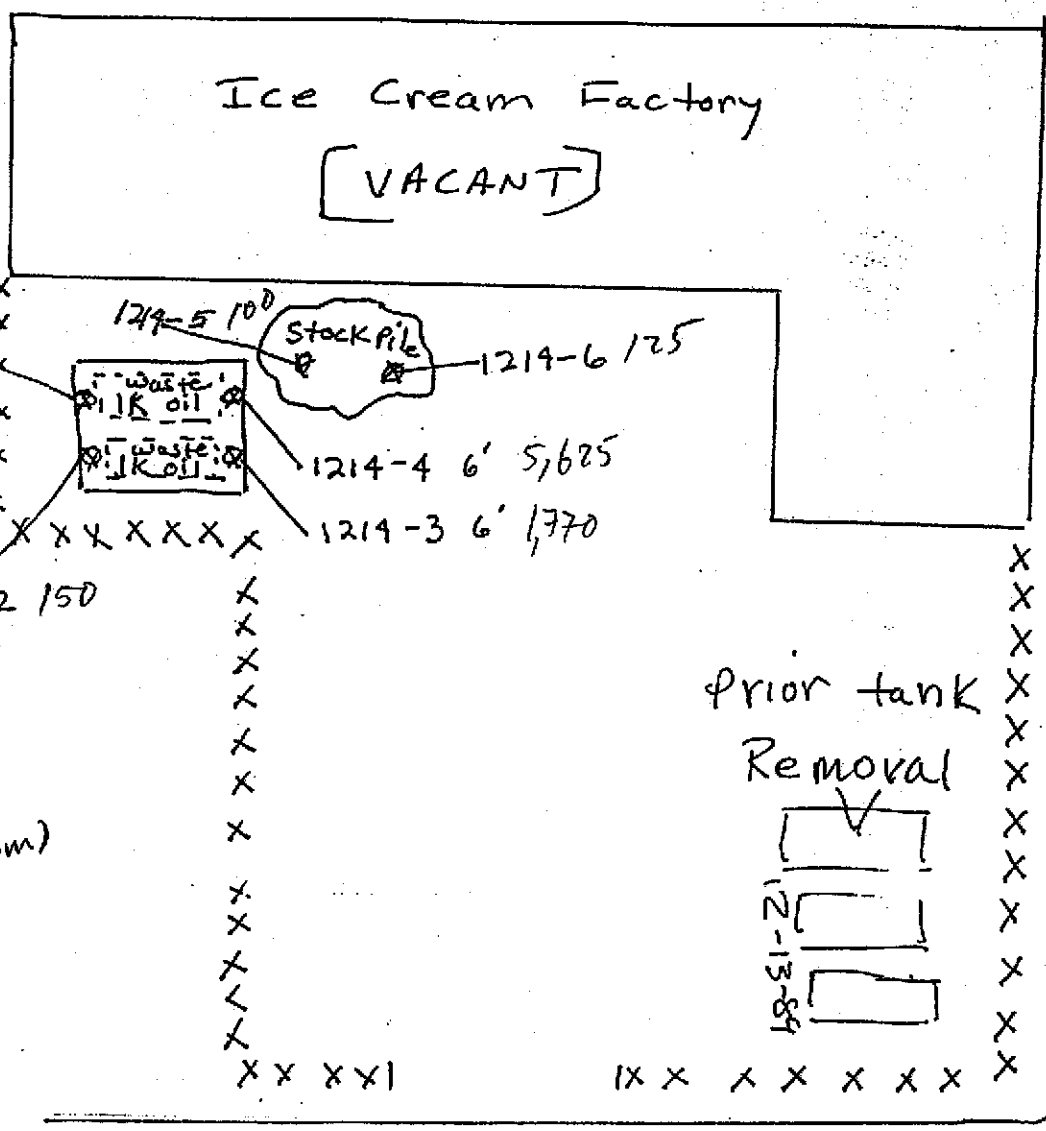 Ice Cream Factory
[VACANT]
1214-5 100
Stockpile
1214-6 125
waste
1K oil
waste
1K oil
1214-4 6' 5,625
1214-3 6' 1,770
2 150
Prior tank
Removal
m)
12-13-89